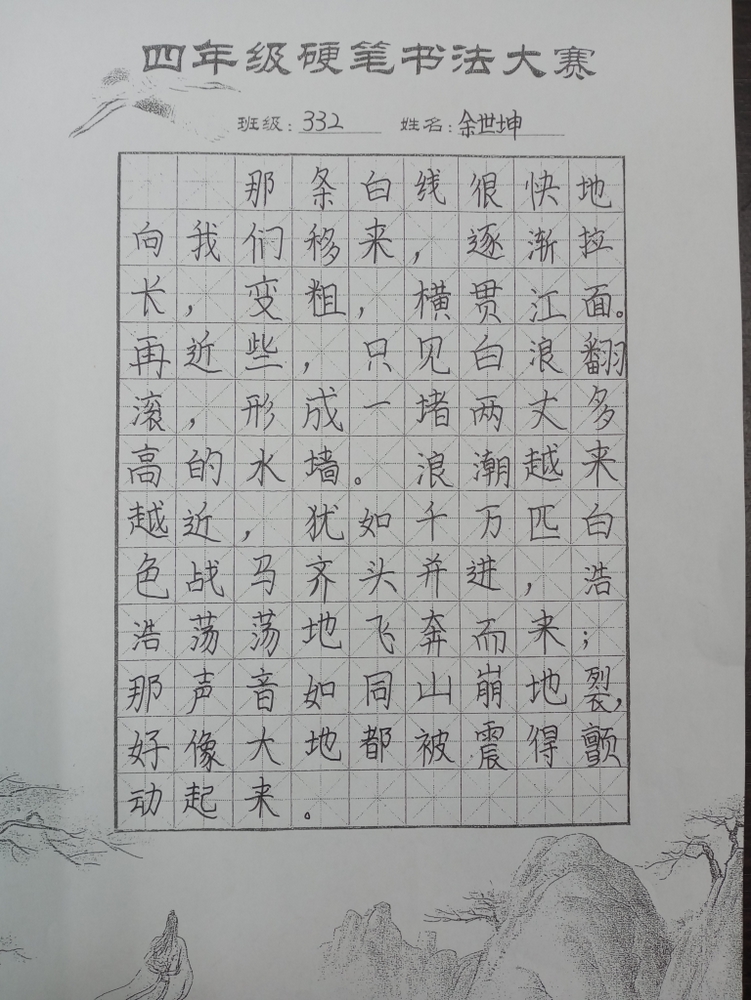 四年级硬笔书法大赛
班级：332 姓名：余世坤
那条白线很快地
向我们移来，逐渐拉
长，变粗，横贯江面。
再近些，只见白浪翻
滚，形成一堵两丈多
高的水墙。浪潮越来
越近，犹如千万匹白
色战马齐头并进，浩
浩荡荡地飞奔而来；
那声音如同山崩地裂，
好像大地都被震得颤
动起来。